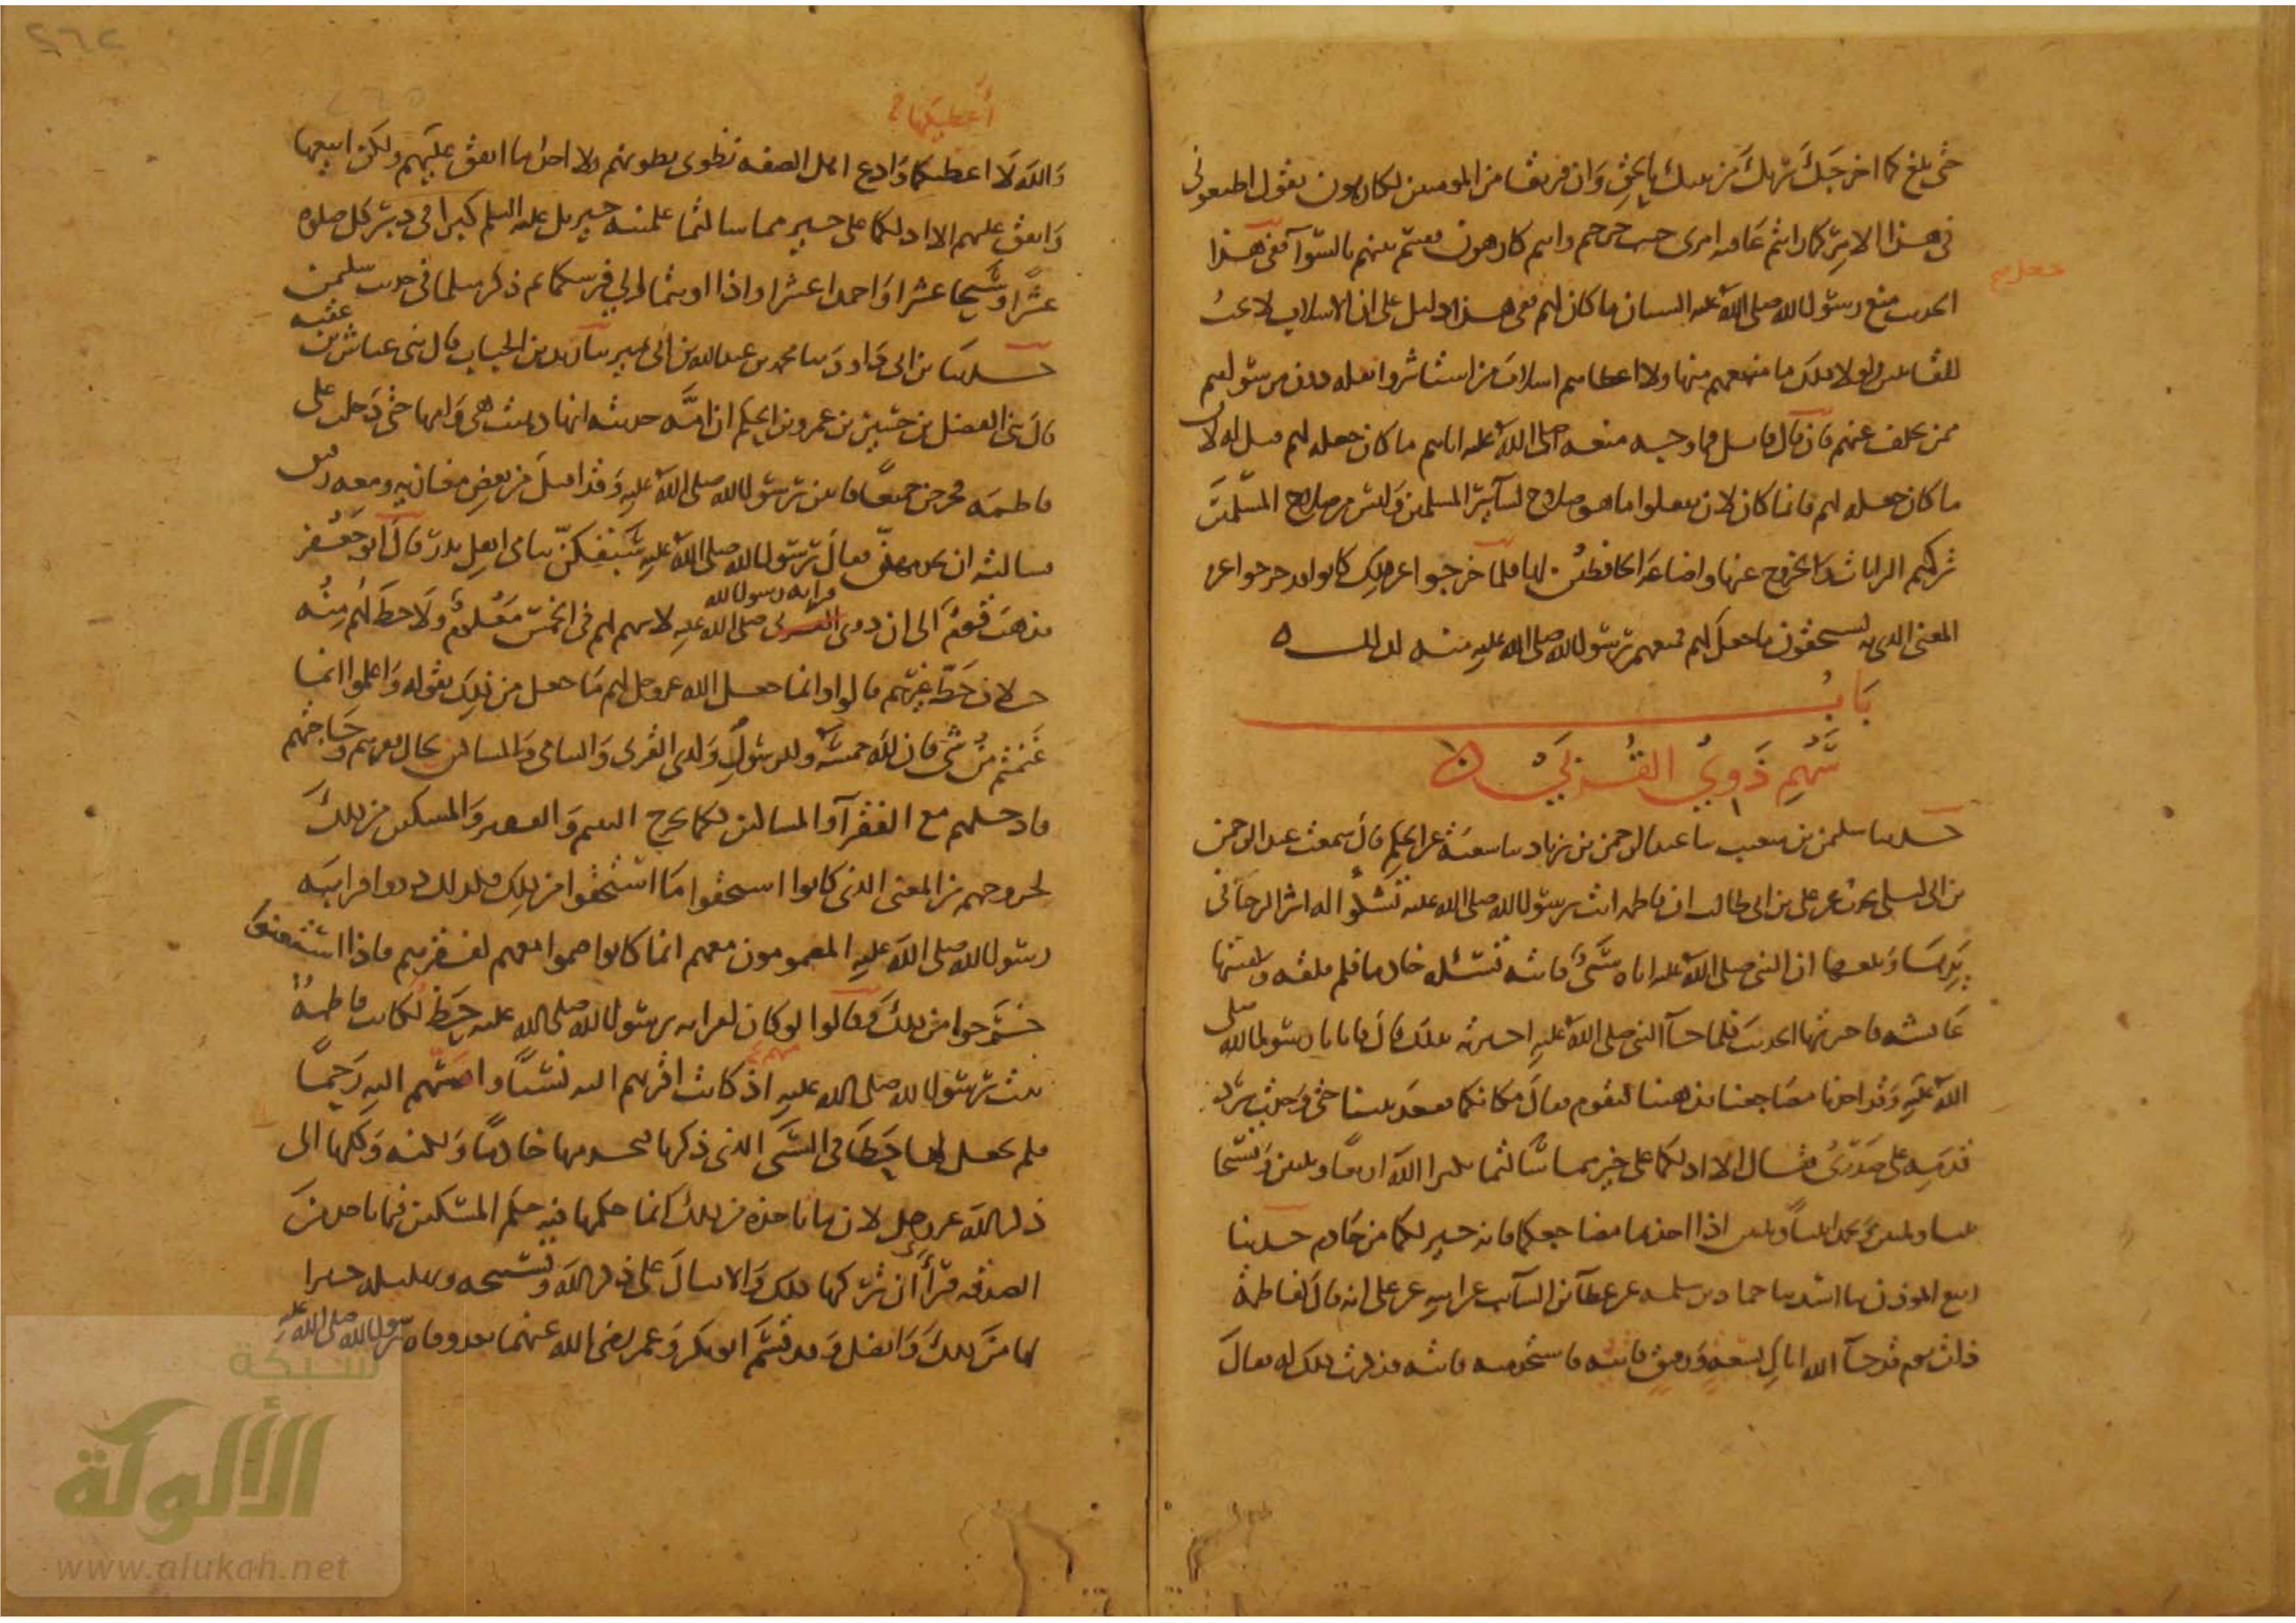 حتى بلغ كما اخرجك ربك من بيتك بالحق وان فريقا من المومنين لكارهون يقول اطيعوني
في هذا الامر كما رايتم عاقبه امري حيث خرجتم وانتم كارهون فقسم بينهم بالسوآ ففي هذا
الحديث منع رسول الله صلى الله عليه الشبان ما كان جعله لهم ففي هذا دليل على ان الاسلاب لا تجب
للقاتلين ولولا ذلك ما منعهم منها ولا اعطاهم اسلاب من استاثروا بقتله دون من سواهم
ممن تخلف عنهم فان قال قايل فما وجه منعه صلى الله عليه اياهم ما كان جعله لهم قيل له لان
ما كان جعله لهم فانما كان لان يفعلوا ما هو صلاح لسآير المسلمين وليس من صلاح المسلمين
تركهم الرايات والخروج عنها واضاعه الحافظين لها فلما خرجوا عن ذلك كانوا قد خرجوا عن
المعنى الذي به يستحقون ما جعل لهم فمنعهم رسول الله صلى الله عليه منه لذلك ه
باب
سهم ذوي القربى ه
حدثنا سليمن بن شعيب ثنا عبد الرحمن بن زياد ثنا شعبة عن الحكم قال سمعت عبد الرحمن
بن ابي ليلى يحدث عن علي بن ابي طالب ان فاطمه اتت رسول الله صلى الله عليه تشكوا اليه اثر الرحآ في
يدها وبلغها ان النبي صلى الله عليه اتاه سبى فاتته تسئله خادما فلم تلقه ولقيتها
عايشه فاخبرتها الحديث فلما جآ النبي صلى الله عليه اخبرته بذلك قال فاتانا رسول الله صلى
الله عليه وقد اخذنا مضاجعنا فذهبنا لنقوم فقال مكانكما فقعد بيننا حتى وجدت برد
قدميه على صدري فقال الا ادلكما على خير مما سالتما تكبرا الله اربعا وثلثين وتسبحا
ثلثا وثلثين وتحمدا ثلثا وثلثين اذا اخذتما مضاجعكما فانه خير لكما من خادم حدثنا
ربيع الموذن ثنا اسد ثنا حماد بن سلمه عن عطآ بن السآيب عن ابيه عن علي انه قال لفاطمة
ذات يوم قد جآ الله اباك بسعه ورقيق فاتيه فاستخدميه فاتته فذكرت ذلك له فقال
أعطيكما
والله لا اعطيكما وادع اهل الصفه تطوى بطونهم ولا اجد ما انفق عليهم ولكن ابيعها
وانفق عليهم الا ادلكما على خير مما سالتما علمنيه جبريل عليه السلم كبرا في دبر كل صلوه
عشرا وسبحا عشرا واحمدا عشرا واذا اويتما الى فرشكما ثم ذكر مثل ما في حديث سليمن
حدثنا بن ابي داود ثنا محمد بن عبد الله بن نمير ثنا زيد بن الحباب قال ثنى عياش بن عقبه
قال ثنى الفضل بن حسن بن عمرو بن الحكم ان امه حدثته انها ذهبت هي وامها حتى دخلت على
فاطمه فخرجن جميعا فاتين رسول الله صلى الله عليه وقد اقبل من بعض مغازيه ومعه رقيق
فسالته ان يخدمهن فقال رسول الله صلى الله عليه سبقكن يتامى اهل بدر قال ابو جعفر
فذهب قوم الى ان ذوى قرابه رسول الله صلى الله عليه لا سهم لهم في الخمس معلوم ولا حظ لهم منه
خلاف حظ غيرهم قالوا وانما جعل الله عز وجل لهم ما جعل من ذلك بقوله واعلموا انما
غنمتم من شى فان لله خمسه وللرسول ولذي القربى واليتامى والمساكين بحال فقرهم وحاجتهم
فادخلهم مع الفقرآ والمساكين فكما يخرج اليتيم والفقير والمسكين من ذلك
لخروجهم من المعنى الذي كانوا استحقوا ما استحقوا من ذلك فكذلك ذووا قرابه
رسول الله صلى الله عليه المضمومون معهم انما كانوا ضموا معهم لفقرهم فاذا استغنوا
خرجوا من ذلك وقالوا لو كان لقرابه رسول الله صلى الله عليه حظ لكانت فاطمة
بنت رسول الله صلى الله عليه منهم اذ كانت اقربهم اليه نسبا وامسهم اليه رحما
فلم يجعل لها حظا في السبى الذي ذكرنا فيخدمها خادما ولكنه وكلها الى
ذكر الله عز وجل لان ما تاخذه من ذلك انما حكمها فيه حكم المسكين فيما ياخذ من
الصدقه فرأى أن تركها ذلك والاقبال على ذكر الله وتسبيحه وتهليله خيرا
لها من ذلك وافضل وقد قسم ابو بكر وعمر رضى الله عنهما بعد وفاه رسول الله صلى الله عليه
شبكة
الألوكة
www.alukah.net